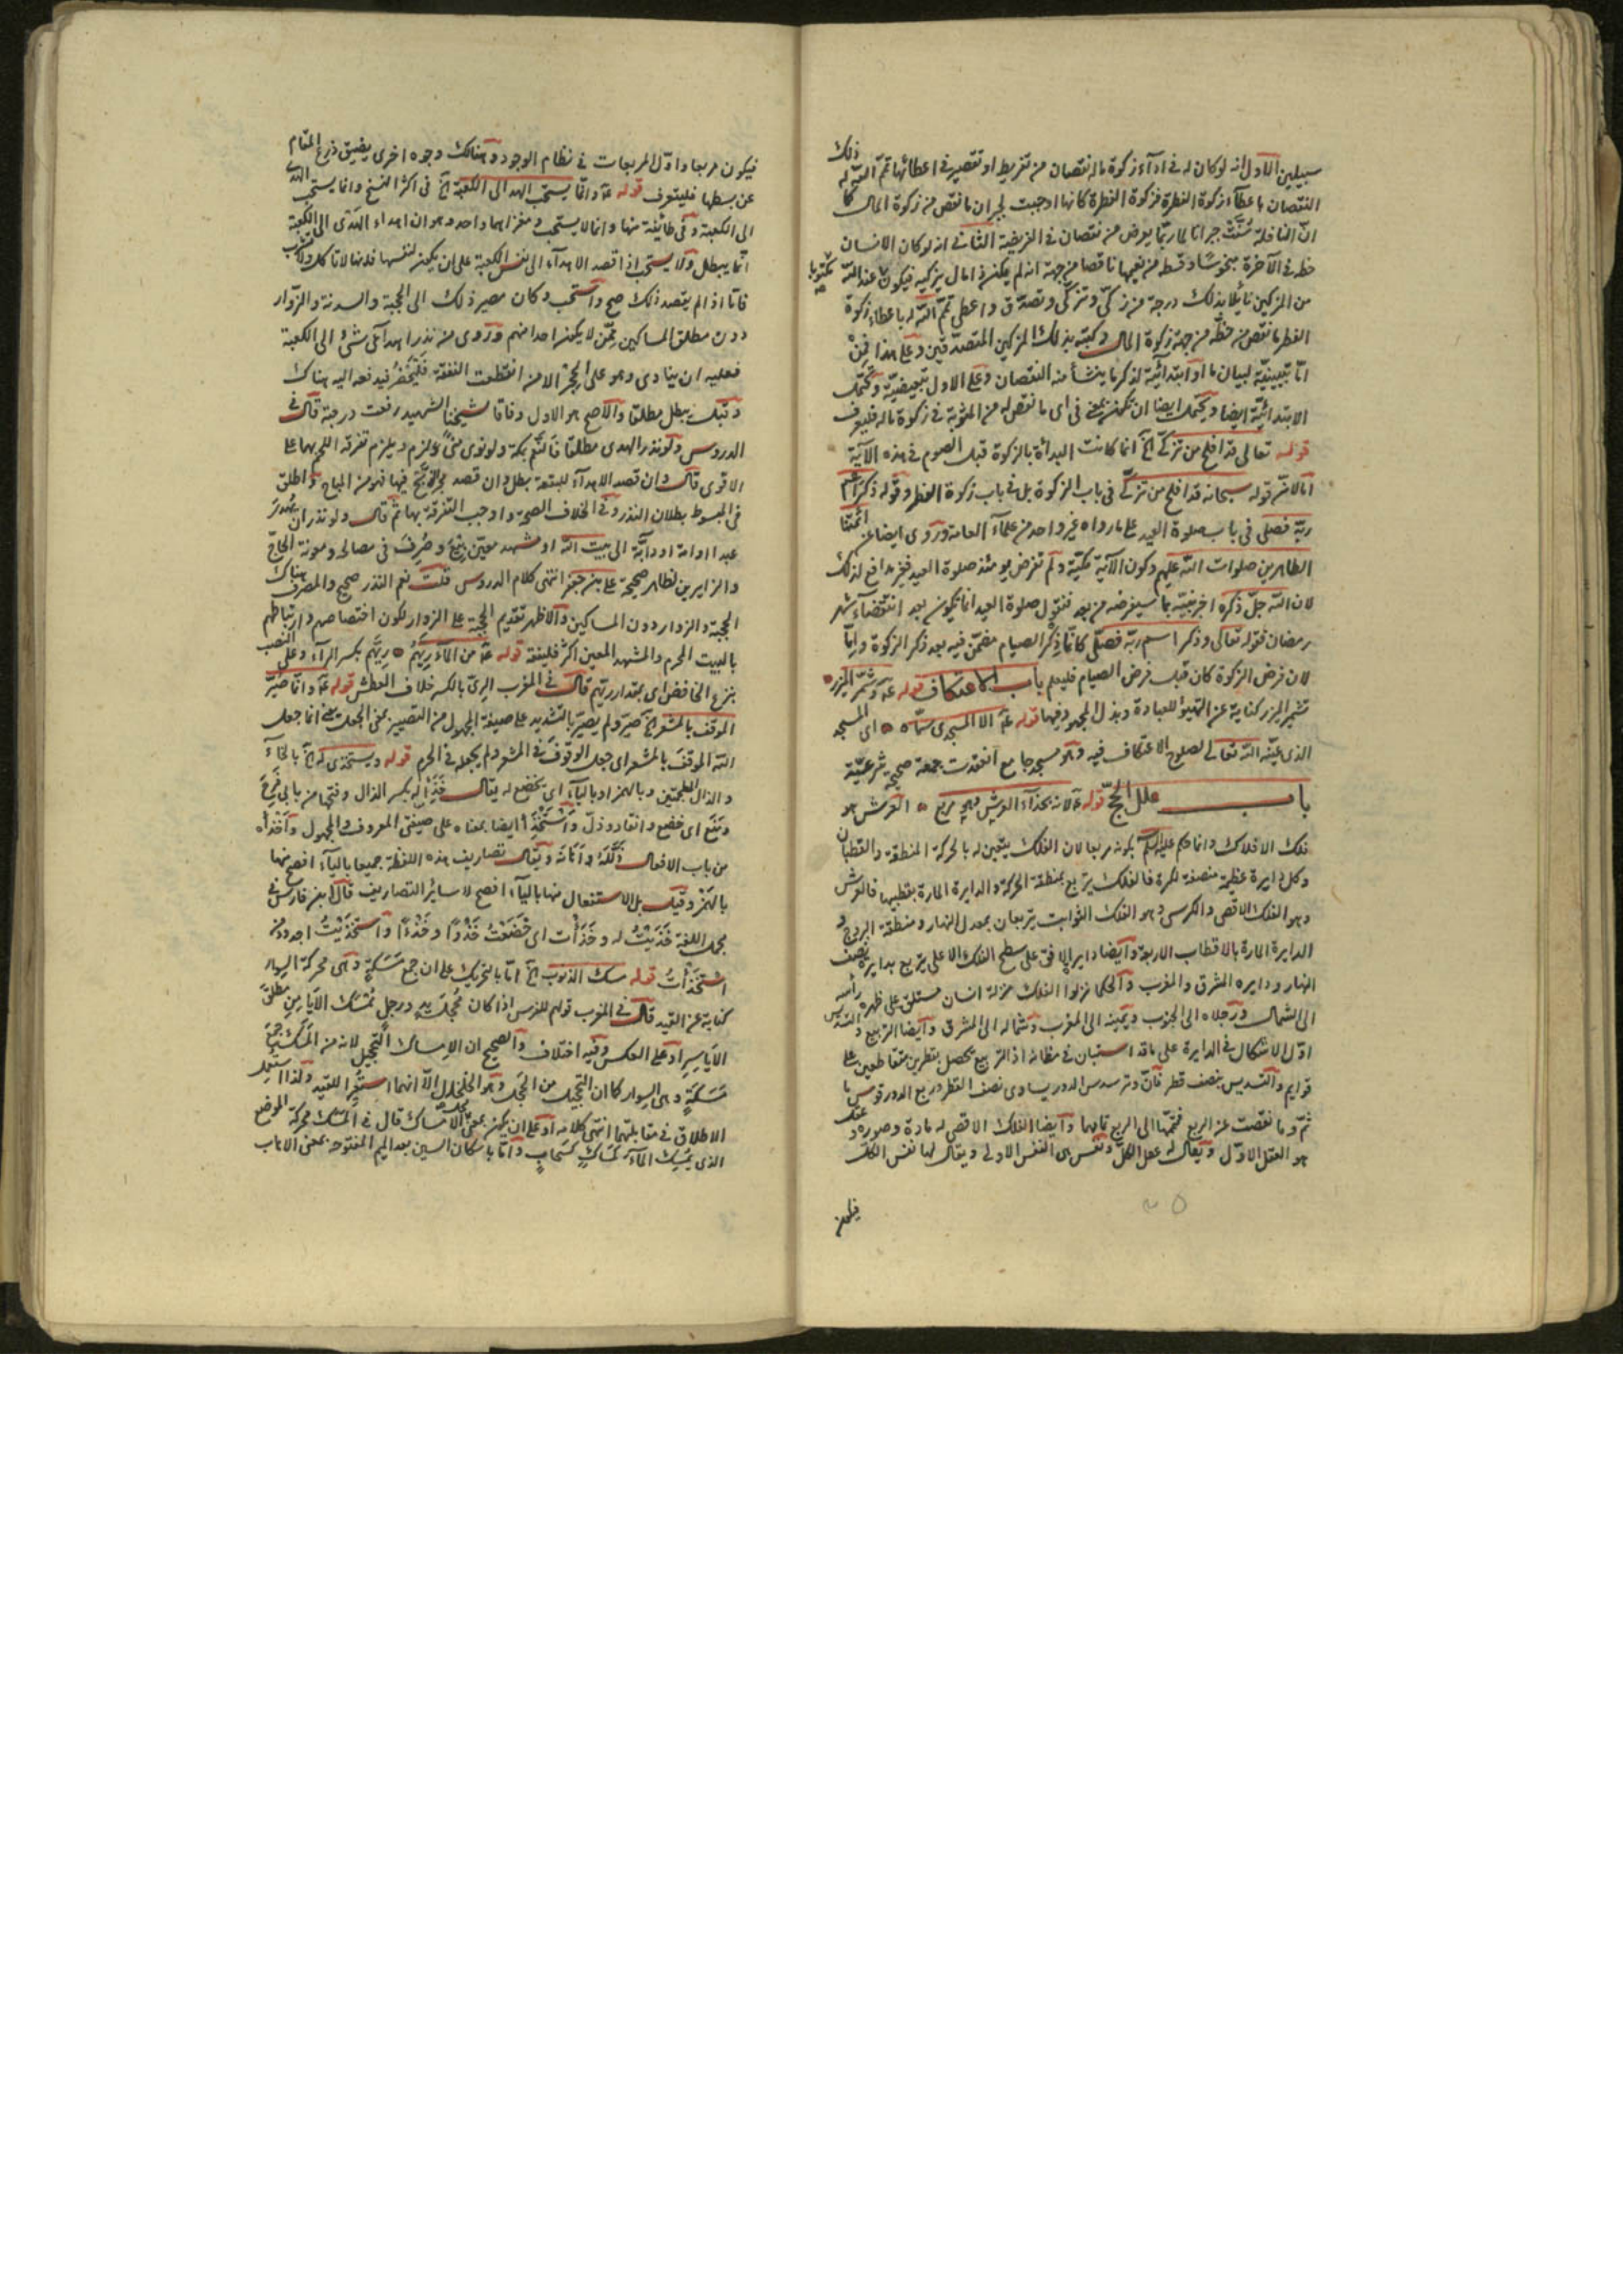 سبيلين الاول انه لو كان له في اداء زكوة ماله نقصان من تفريط او تقصير في اعطائها تمّم الله له ذلك
النقصان باعطاء زكوة الفطرة فزكوة الفطرة كانها اوجبت لجبران ما نقص من زكوة المال كما
انّ النافلة سُنّت جبرانا لما ربّما يعرض من نقصان في الفريضة الثاني انه لو كان الانسان
حظه في الآخرة مبخوسًا وقسطه من نعيمها ناقصا من جهة انه لم يكن ذا مال يزكيه فيكون عند الله مكتوبا
من المزكين نائلا بذلك درجة من زكّى وتزكّى وتصدّق واعطى تمّم الله له باعطاء زكوة
الفطر ما نقص من حظّه من جهة زكوة المال وكتبه بذلك من المزكين المتصدّقين وعلى هذا فمِنْ
امّا تبيينيّة لبيان ما او ابتدائيّة لذكر ما ينشأ منه النقصان وعلى الاول تبعيضيّة ويحتمل
الابتدائيّة ايضا ويحتمل ايضا ان تكون من بمعنى في اى ما نقص له من المثوبة في زكوة ماله فليعرف
قوله تعالى قد افلح من تزكّى الخ انما كانت البدأة بالزكوة قبل الصوم في هذه الآية
امّا لا نسّر قوله سبحانه قد افلح من تزكّى في باب الزكوة بل في باب زكوة الفطر وقوله ذكر اسم
ربّه فصلى في باب صلوة العيد على ما رواه غير واحد من علماء العامة وروى ايضا عن ائمتنا
الطاهرين صلوات الله عليهم وكون الآية مكيّة ولم تفرض يومئذ صلوة العيد فغير مدافع لذلك
لان الله جلّ ذكره اخبر فيه بما سيفرضه من بعد فنقول صلوة العيد انما يكون بعد انقضاء شهر
رمضان فقوله تعالى وذكر اسم ربّه فصلّى كانّما ذِكْر الصيام مضمّن فيه بعد ذكر الزكوة وامّا
لان فرض الزكوة كان قبل فرض الصيام فليعلم باب الاعتكاف قوله عم وشمّر المئزر
تشمير المئزر كناية عن التهيؤ للعبادة وبذل المجهود فيها قوله عم الا المسجد سمّاه اى المسجد
الذى عيّنه الله تعالى لصلوح الاعتكاف فيه وهو مسجد جامع انعقدت جمعة صحيحة شرعيّة
باب علل الحجّ قوله عم لانه بحذاء العرش وهو مربع العرش هو
فلك الافلاك وانما حكم عليه السلم بكونه مربعا لان الفلك يتعين له بالحركة المنطقة والقطبان
وكل دايرة عظيمة منصفة للكرة فالفلك يتربع بمنطقة الحركة والدايرة المارة بقطبيها فالعرش
وهو الفلك الاقصى والكرسى وهو الفلك الثوابت يتربعان بمعدل النهار ومنطقة البروج و
الدايرة المارة بالاقطاب الاربعة وايضا دايرة الافق على سطح الفلك الاعلى يتربع بدايرة نصف
النهار ودايره المشرق والمغرب والحكما نزلوا الفلك منزلة انسان مستلق على ظهره رأسه
الى الشمال ورجلاه الى الجنوب ويمينه الى المغرب وشماله الى المشرق وايضا التربيع والتسديس
اوّل الاشكال في الدايرة على ما قد استبان في مظانه اذ التربيع يحصل بقطرين متقاطعين على
قوايم والتسديس بنصف قطر فانّ وتر سدس الدور يساوى نصف القطر وربع الدور قوس تا
مّة وما نقصت عن الربع فمتمّها الى الربع تمامها وايضا الفلك الاقصى له مادة وصورة وعقل
هو العقل الاوّل ويقال له عقل الكلّ ونفس هى النفس الاولى ويقال لها نفس الكلّ
فيكون
فيكون مربعا واوّل المربعات في نظام الوجود وهناك وجوه اخرى يضيق ذرع المقام
عن بسطها فليتعرف قوله عم وانّما يستحب الهدى الى الكعبة الخ في اكثر النسخ وانما يستحب الهدى
الى الكعبة وفي طائفة منها وانما لا يستحب ومغزاهما واحد وهو ان اهداء الهدى الى الكعبة
انّما يبطل ولا يستحب اذا قصد الاهداء الى نفس الكعبة على ان يكون لنفسها فانها لا تاكل ولا تشرب
فامّا اذا لم يقصد ذلك صح واستحب وكان مصير ذلك الى الحجبة والسدنة والزوّار
دون مطلق المساكين ممّن لا يكون احدا منهم وروى من نذر اهداء شئ الى الكعبة
فعليه ان ينادى وهو على الحِجْر الا من انقطعت النفقة فليحضُر فيدفعه اليه هناك
وقيل يبطل مطلقا والاصح هو الاول وفاقا لشيخنا الشهيد رفعت درجته قال في
الدروس ولو نذر الهدى مطلقا فالنعم بمكة ولو نوى منًى لزم ويلزم تفرقة اللحم بهما على
الاقوى قال وان قصد الاهداء للبقعة بطل وان قصد مجرّد الذبح فيها فهو من المباح واطلق
في المبسوط بطلان النذر وفي الخلاف الصحة واوجب التفرقة بها ثم قال ولو نذر ان يُهدىَ
عبدا او امة او دابّة الى بيت الله او مشهد معيّن بيعَ وصُرِفَ في مصالحه ومونة الحاجّ
والزايرين لظاهر صحيحة على بن جعفر انتهى كلام الدروس قلت نعم النذر صحيح والمصرف هناك
الحجبة والزوار دون المساكين والاظهر تقديم الحجبة على الزوار لكون اختصاصهم وارتباطهم
بالبيت الحرم والمشهد المعين اكثر فليفقه قوله عم من الماء رِيَّهُم رِيَّهم بكسر الراء وعلى النصب
بنزع الخافض اى بمقدار ريّهم قال في المغرب الرِىّ بالكسر خلاف العطش قوله عم وانما صُيّر
الموقف بالمشعر الخ صُيّر ولم يصيّر بالتشديد على صيغة المجهول من التصيير بمعنى الجعل يعنى انما جعل
الله الموقف بالمشعر اى جعل الوقوف في المشعر ولم يجعله في الحرم قوله ويستخذى له الخ بالخاء
والذال المعجمتين وبالهمز او بالياء اى يخضع له يقال خَذِأَ له بكسر الذال وفتحها من بابى فَرِحَ
ومَنَع اى خضع وانقاد وذلّ واستخذأ ايضا بمعناه على صيغتى المعروف والمجهول واَخذأه
من باب الافعال ذَلَّلَه ويقال تصاريف هذه اللفظة جميعا بالياء افصح منها
بالهمز وقيل بل الاستفعال منها بالياء افصح لا ساير التصاريف قال ابن فارس في
مجمل اللغة خَذَيْتُ له وخَذَأت اى خَضَعْتُ خَذْوًا وخَذْءًا واستخذَيْتُ اجود من
استخذأتُ قوله مسك الذنوب الخ امّا بالتحريك على ان جمع مَسَكَةٍ وهى محركة السوار
كناية عن القيد قال في المغرب قولهم للفرس اذا كان مُحجّل يد ورجل مُمسَك الايامن مطلق
الاياسر او على العكس وفيه اختلاف والصحيح ان الامساك التحجيل لانه من المَسَك جمع
مَسَكَةٍ وهى السوار كما ان التحجيل من الحِجل وهو الخلخال الا انهما استعيرا للقيد ولذا استعمل
الاطلاق في مقابلتهما انتهى كلامه او على ان يكون بمعنى الامساك قال في المسك محركة الموضع
الذى يُمسِك الماء كمَساكٍ كسَحابٍ وامّا باسكان السين بعد الميم المفتوحة بمعنى الاهاب